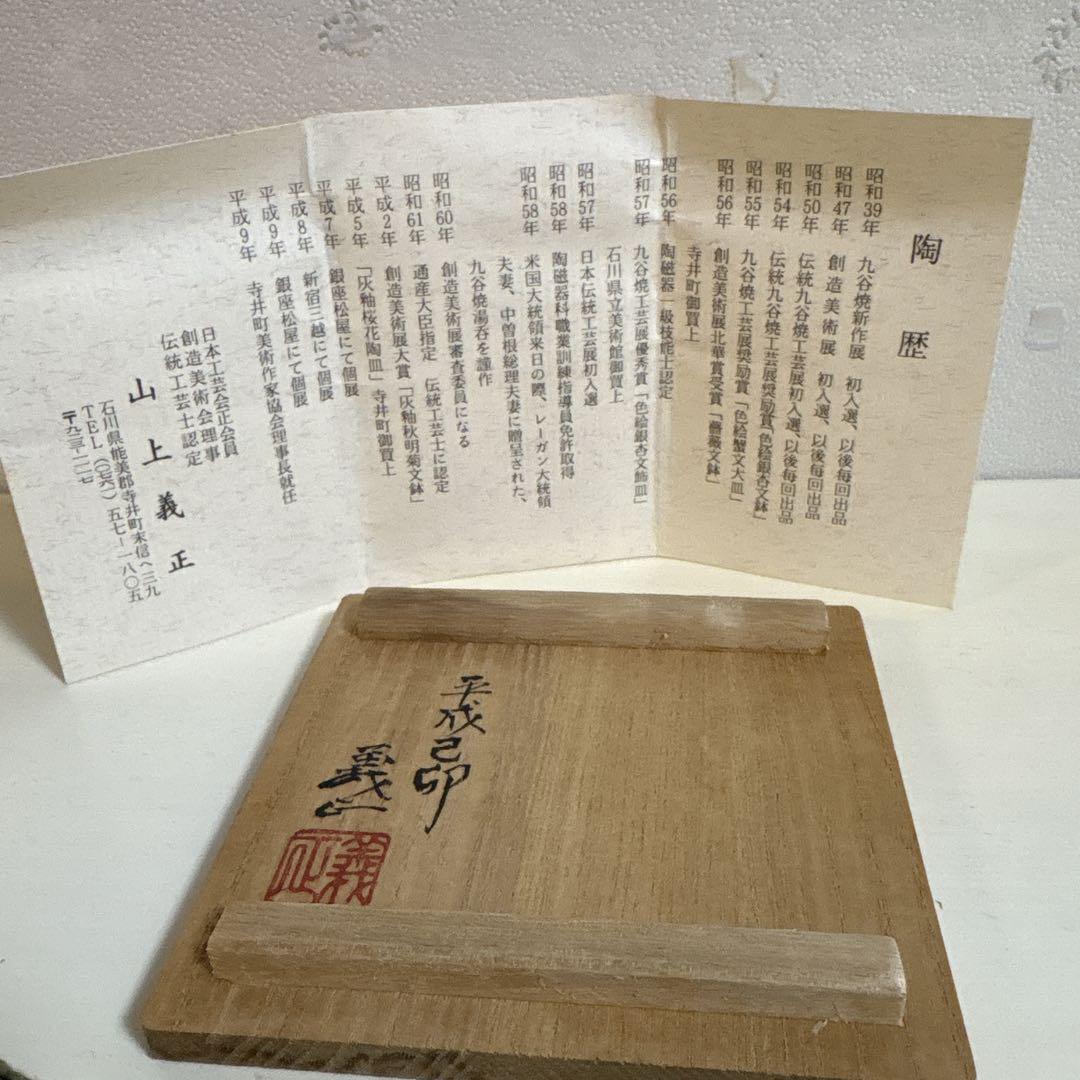 陶歴
昭和39年 九谷焼新作展 初入選、以後毎回出品
昭和47年 創造美術展 初入選、以後毎回出品
昭和50年 伝統九谷焼工芸展初入選、以後毎回出品
昭和54年 伝統九谷焼工芸展奨励賞「色絵銀杏文鉢」
昭和55年 九谷焼工芸展奨励賞「色絵蟹文大皿」
昭和56年 創造美術展北華賞受賞「薔薇文鉢」
寺井町御買上
昭和56年 陶磁器一級技能士認定
昭和57年 九谷焼工芸展優秀賞「色絵銀杏文飾皿」
石川県立美術館御買上
昭和57年 日本伝統工芸展初入選
昭和58年 陶磁器科職業訓練指導員免許取得
昭和58年 米国大統領来日の際、レーガン大統領
夫妻、中曽根総理夫妻に贈呈された、
九谷焼湯呑を謹作
昭和60年 創造美術展審査委員になる
昭和61年 通産大臣指定 伝統工芸士に認定
平成2年 創造美術展大賞「灰釉秋明菊文鉢」
平成5年 「灰釉桜花陶皿」寺井町御買上
平成7年 銀座松屋にて個展
平成8年 新宿三越にて個展
平成9年 銀座松屋にて個展
平成9年 寺井町美術作家協会理事長就任
日本工芸会正会員
創造美術会理事
伝統工芸士認定
山上義正
石川県能美郡寺井町末信へ三九
TEL(〇七六一)五七ー一八〇五
平成己卯
義正
義正